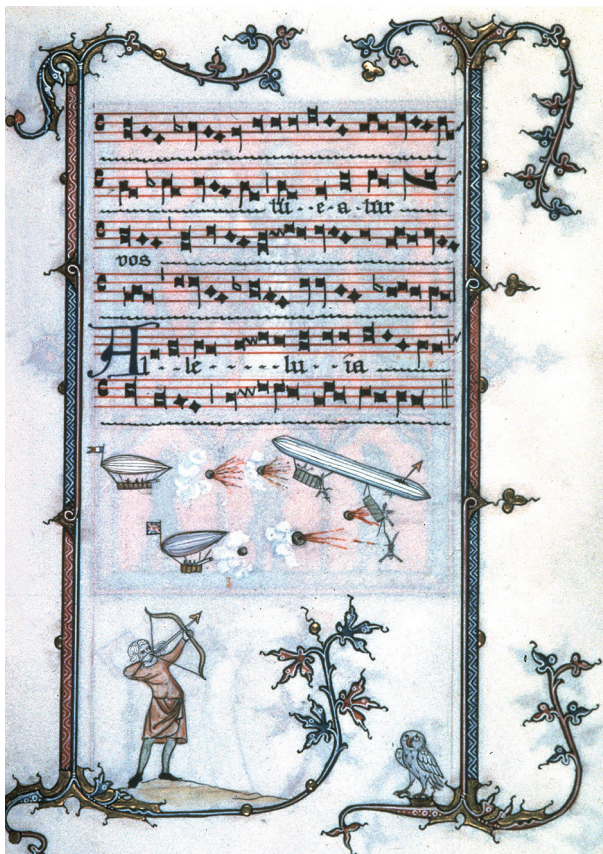 tu - - e - a - tur
vos
Al - - le - - - - - - lu - - ia